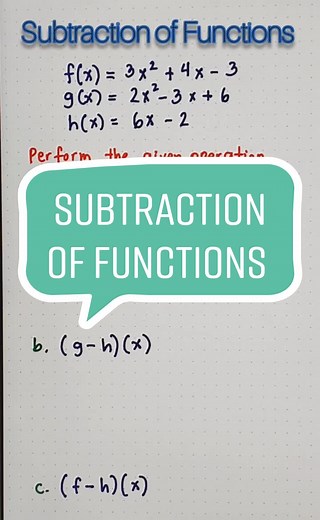 Subtraction of Functions
f(x) = 3x² + 4x - 3
g(x) = 2x² - 3x + 6
h(x) = 6x - 2
Perform the given operation
SUBTRACTION
OF FUNCTIONS
b. (g-h)(x)
c. (f-h)(x)